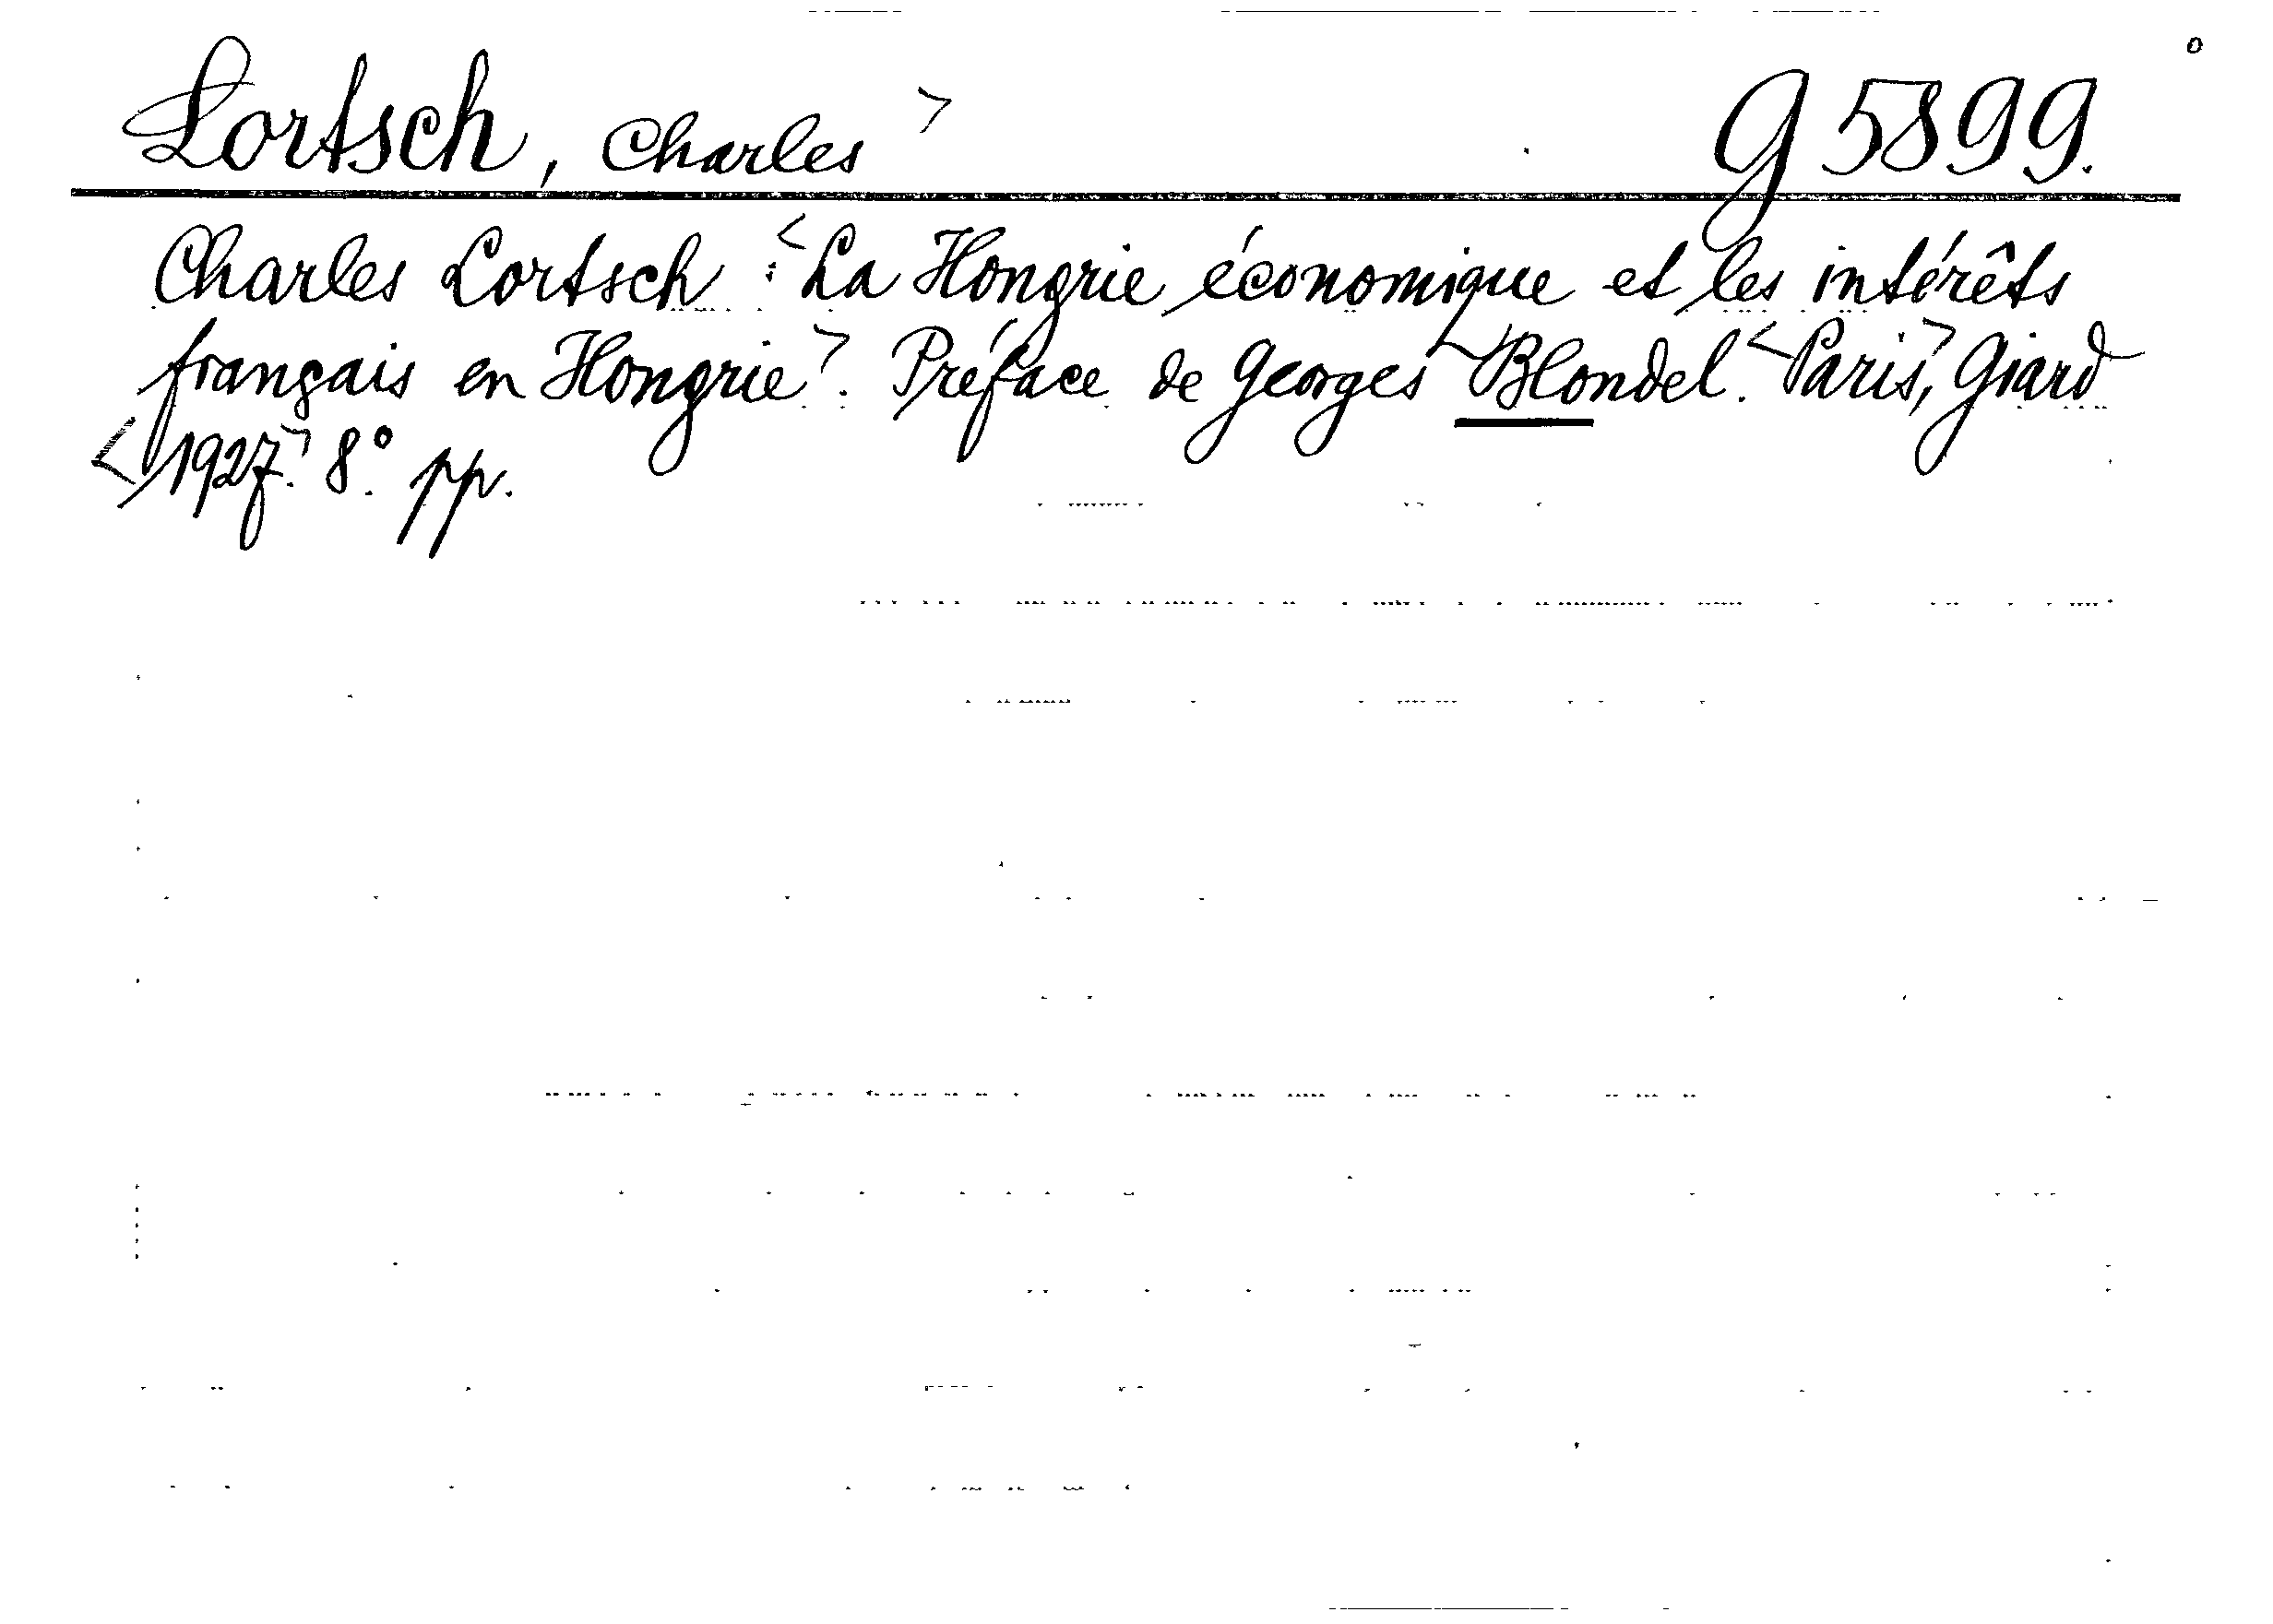 Lortsch, Charles> G 5899.
Charles Lortsch : <La Hongrie économique et les intérêts
français en Hongrie>. Préface de Georges <Blondel. <Paris>, Giard
<1927>. 8°. pp.